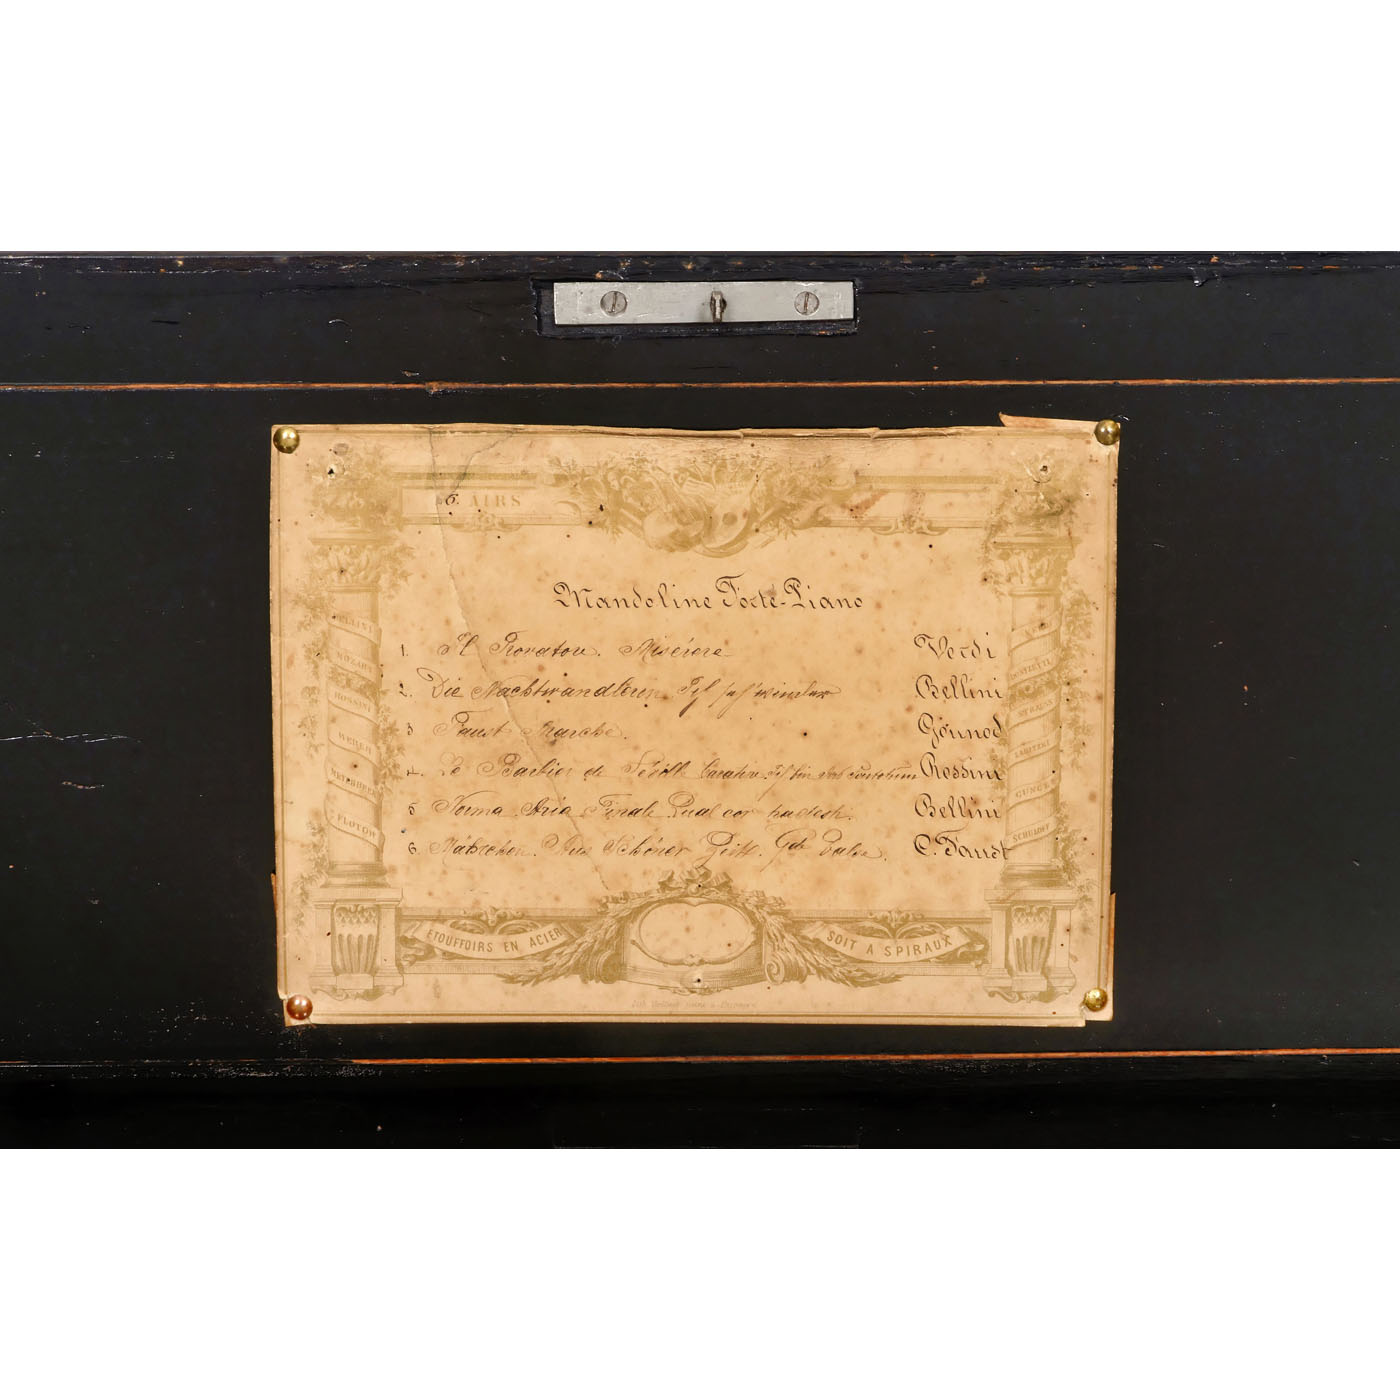 6 AIRS
Mandoline Forté-Piano
1. Il Trovatore. Misérere Verdi
2. Die Nachtwandlerin Bellini
3 Faust Marche. Gounod
4. Le Barbier de Rossini
5 Norma Aria Finale Qual cor tradesti. Bellini
6. Märchen. Aus Schöner Zeit. Valse. C. Faust
BELLINI
MOZART
ROSSINI
WEBER
MEYERBEER
FLOTOW
DONIZETTI
STRAUSS
LABITZKI
GUNGL
SCHUBERT
ETOUFFOIRS EN ACIER
SOIT A SPIRAUX